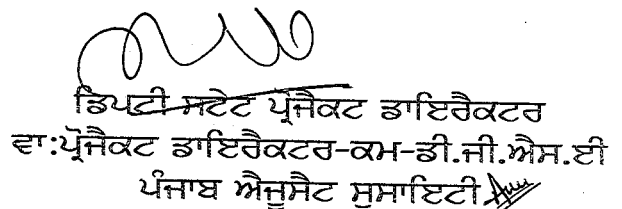 ਡਿਪਟੀ ਸਟੇਟ ਪ੍ਰੋਜੈਕਟ ਡਾਇਰੈਕਟਰ
ਵਾ:ਪ੍ਰੋਜੈਕਟ ਡਾਇਰੈਕਟਰ-ਕਮ-ਡੀ.ਜੀ.ਐਸ.ਈ
ਪੰਜਾਬ ਐਜੂਸੈਟ ਸੁਸਾਇਟੀ